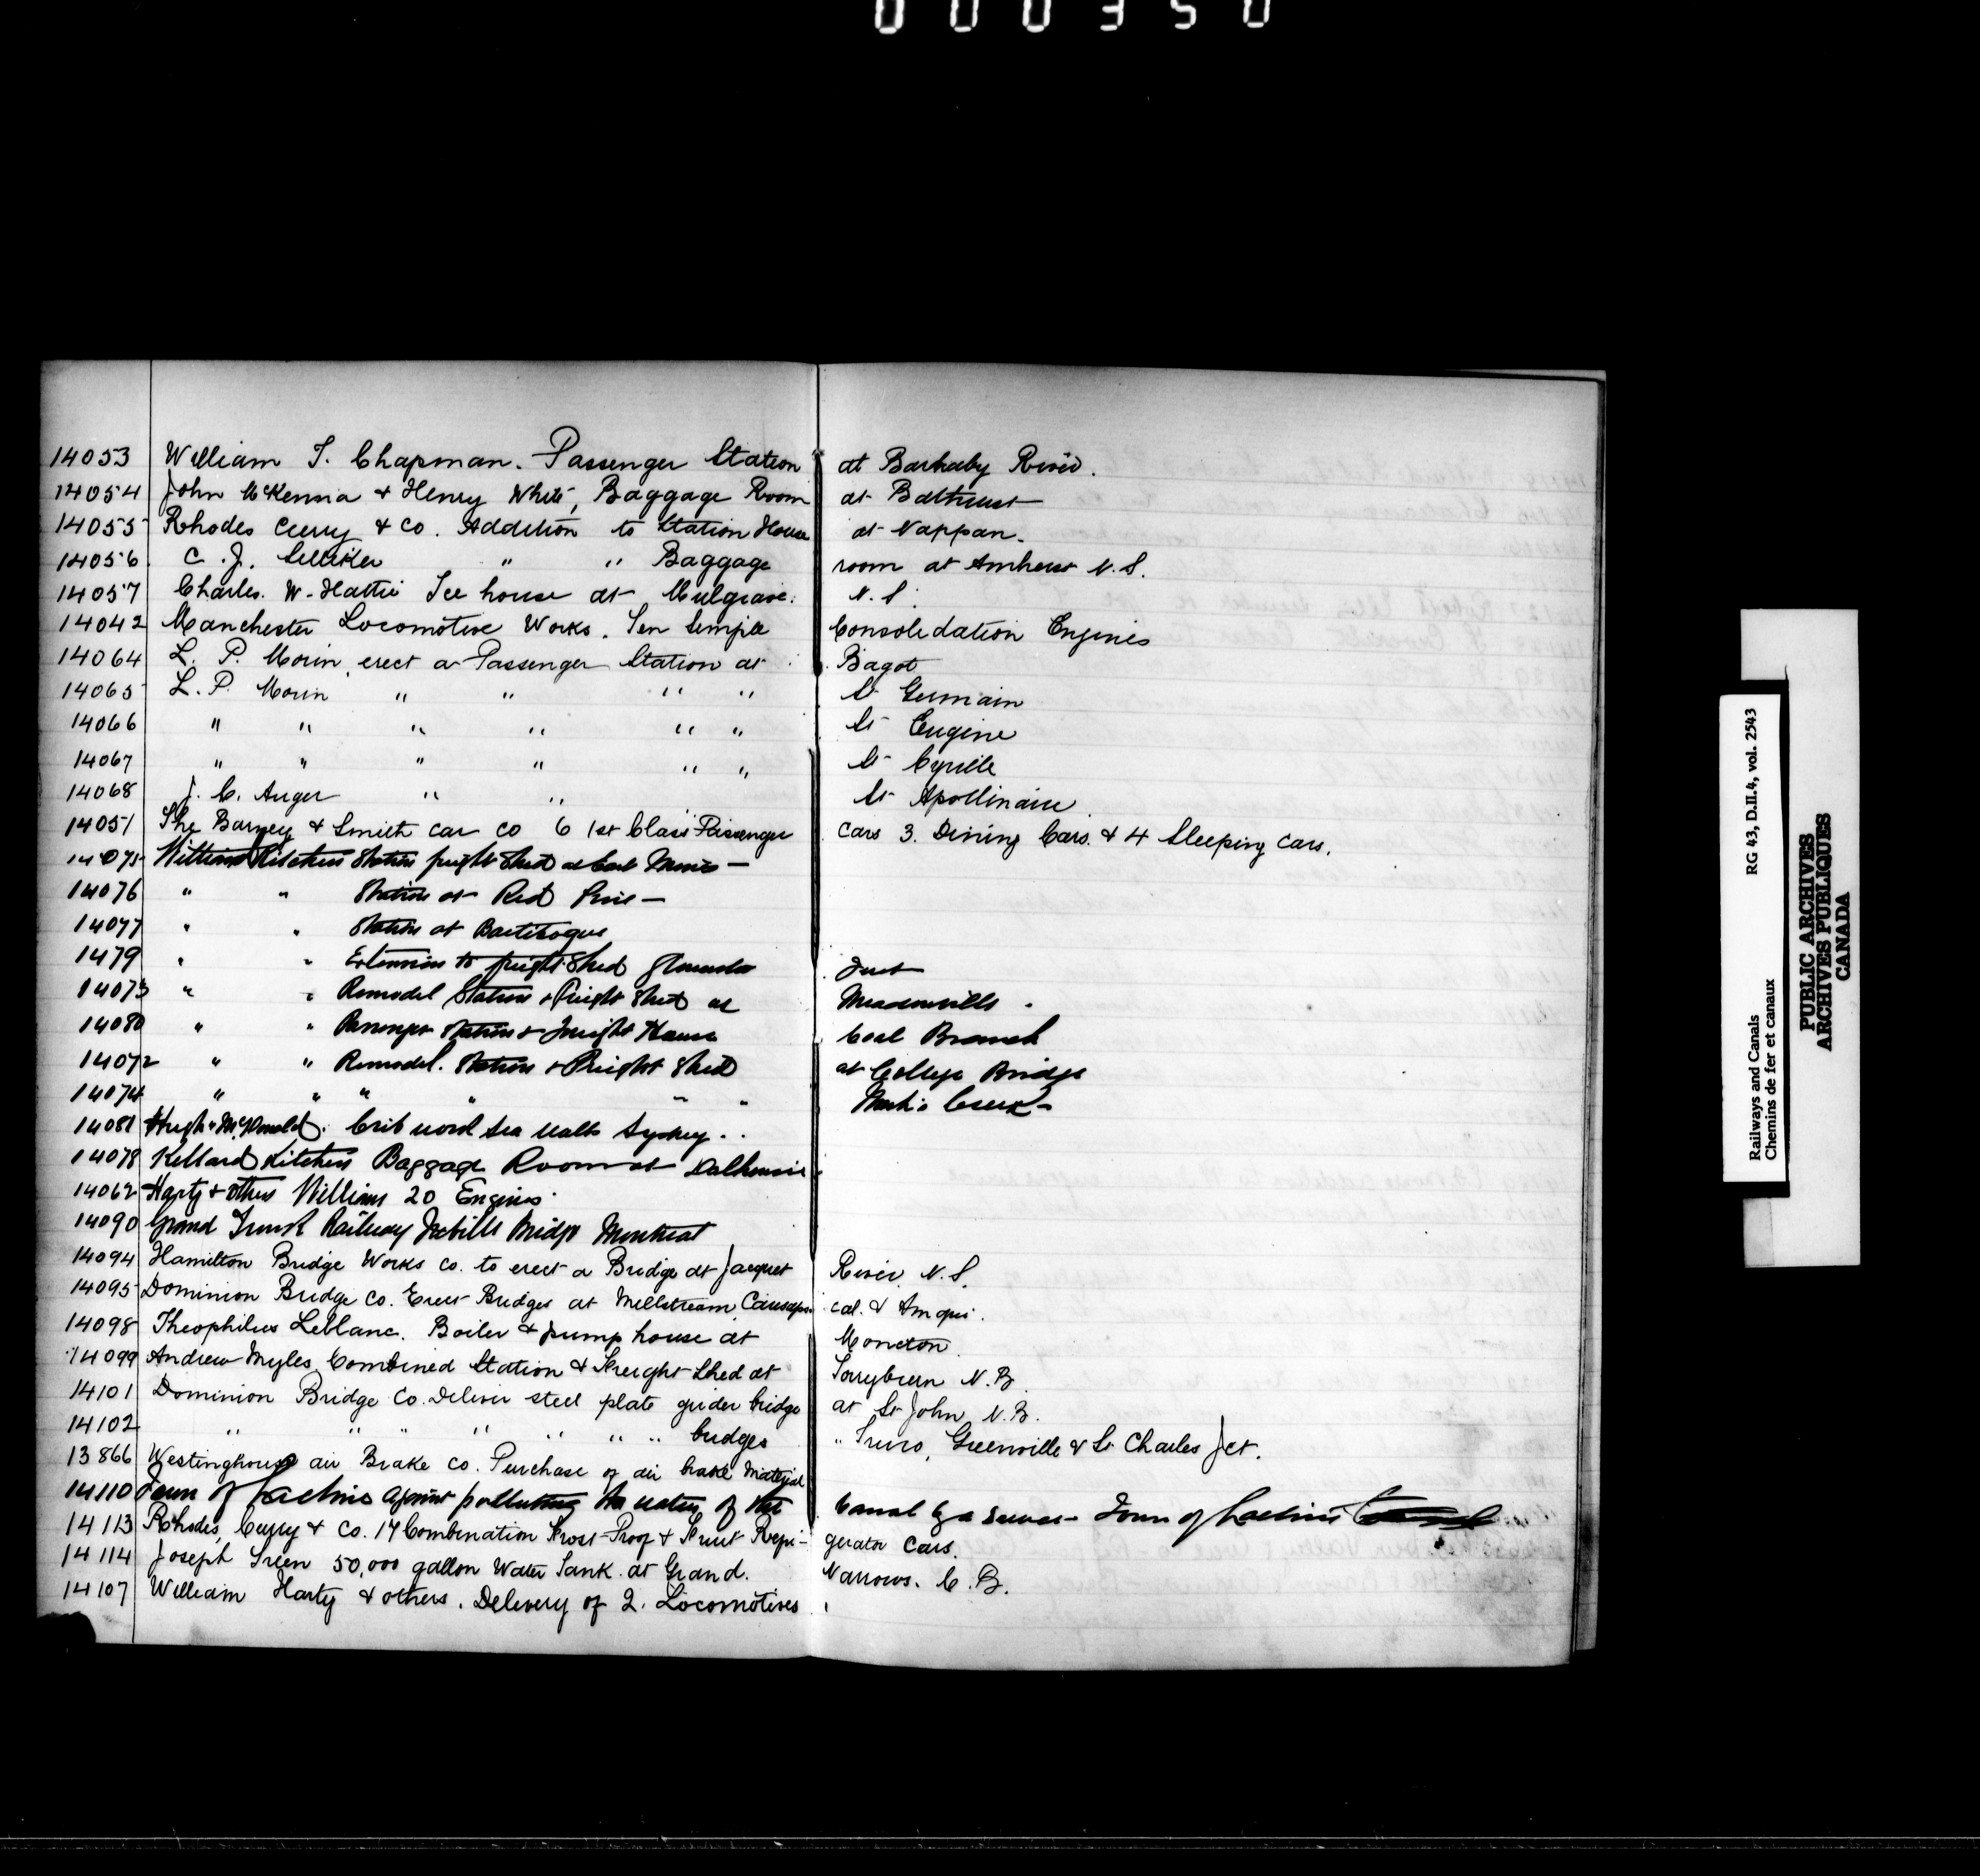 000350
14053 William T. Chapman. Passenger Station at Barnaby River.
14054 John McKenna & Henry White, Baggage Room at Bathurst
14055 Rhodes Curry & Co. Addition to Station House at Nappan.
14056 C. J. Silliker " " Baggage room at Amherst N.S.
14057 Charles. W. Hattie Ice house at Mulgrave. N.S.
14042 Manchester Locomotive Works. Ten Simple Consolidation Engines
14064 L. P. Morin erect a Passenger Station at Bagot
14065 L. P. Morin " " " " St Germain
14066 " " " " " " St Eugine
14067 " " " " " " St Cyrille
14068 J. C. Auger " " St Apollinaire
14051 The Barney & Smith Car Co 6 1st Class Passenger Cars 3. Dining Cars. & 4 Sleeping Cars.
14075 William Kitchen Station freight Shed at Coal Mines —
14076 " " Station at Red Pine —
14077 " " Station at Bartibogue
1479 " " Extension to freight Shed Gloucester Junct
14073 " " Remodel Station & Freight Shed at Meadowville
14080 " " Passenger Station & Freight House Coal Branch
14072 " " Remodel. Station & Freight Shed at College Bridge
14074 " " " " " " Creek —
14081 Hugh McDonald. Crib work Sea walls Sydney..
14078 Kellard Kitchen Baggage Room at Dalhousie
14062 Harty & others William 20 Engines.
14090 Grand Trunk Railway Bridge Montreal
14094 Hamilton Bridge Works Co. to erect a Bridge at Jacquet River N.S.
14095 Dominion Bridge Co. Erect Bridges at Millstream Causapscal. & Amqui.
14098 Theophilus Leblanc. Boiler & pump house at Moncton
14099 Andrew Myles, Combined Station & Freight Shed at Torryburn N.B.
14101 Dominion Bridge Co. Deliver steel plate girder bridge at St John N.B.
14102 " " " " " " " bridges " Truro, Greenville & St. Charles Jct.
13866 Westinghouse air Brake Co. Purchase of air brake Material
14110 Town of Lachine against polluting the water of the Canal by a sewer — Town of Lachine
14113 Rhodes, Curry & Co. 17 Combination Frost-Proof & Fruit Refri-gerator Cars.
14114 Joseph Green 50,000 gallon Water Tank at Grand. Narrows. C.B.
14107 William Harty & others. Delivery of 2. Locomotives
RG 43, D.II.4, vol. 2543
Railways and Canals
Chemins de fer et canaux
PUBLIC ARCHIVES
ARCHIVES PUBLIQUES
CANADA